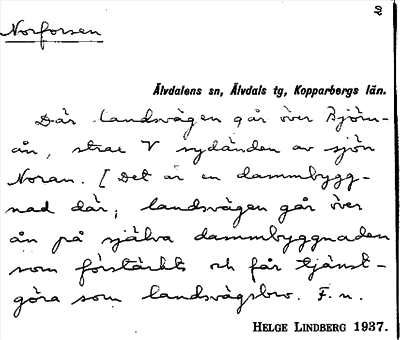 2
Norforsen
Älvdalens sn, Älvdals tg, Kopparbergs län.
Där landsvägen går över Björn-
ån, strax V sydänden av sjön
Noran. [Det är en dammbygg-
nad där; landsvägen går över
ån på själva dammbyggnaden
som förstärkts och får tjänst-
göra som landsvägsbro. F. n.
HELGE LINDBERG 1937.